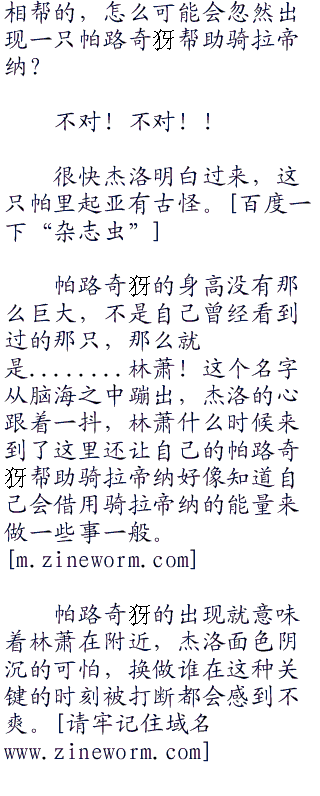 相帮的，怎么可能会忽然出
现一只帕路奇犽帮助骑拉帝
纳？
不对！不对！！
很快杰洛明白过来，这
只帕里起亚有古怪。[百度一
下“杂志虫”]
帕路奇犽的身高没有那
么巨大，不是自己曾经看到
过的那只，那么就
是........林萧！这个名字
从脑海之中蹦出，杰洛的心
跟着一抖，林萧什么时候来
到了这里还让自己的帕路奇
犽帮助骑拉帝纳好像知道自
己会借用骑拉帝纳的能量来
做一些事一般。
[m.zineworm.com]
帕路奇犽的出现就意味
着林萧在附近，杰洛面色阴
沉的可怕，换做谁在这种关
键的时刻被打断都会感到不
爽。[请牢记住域名
www.zineworm.com]